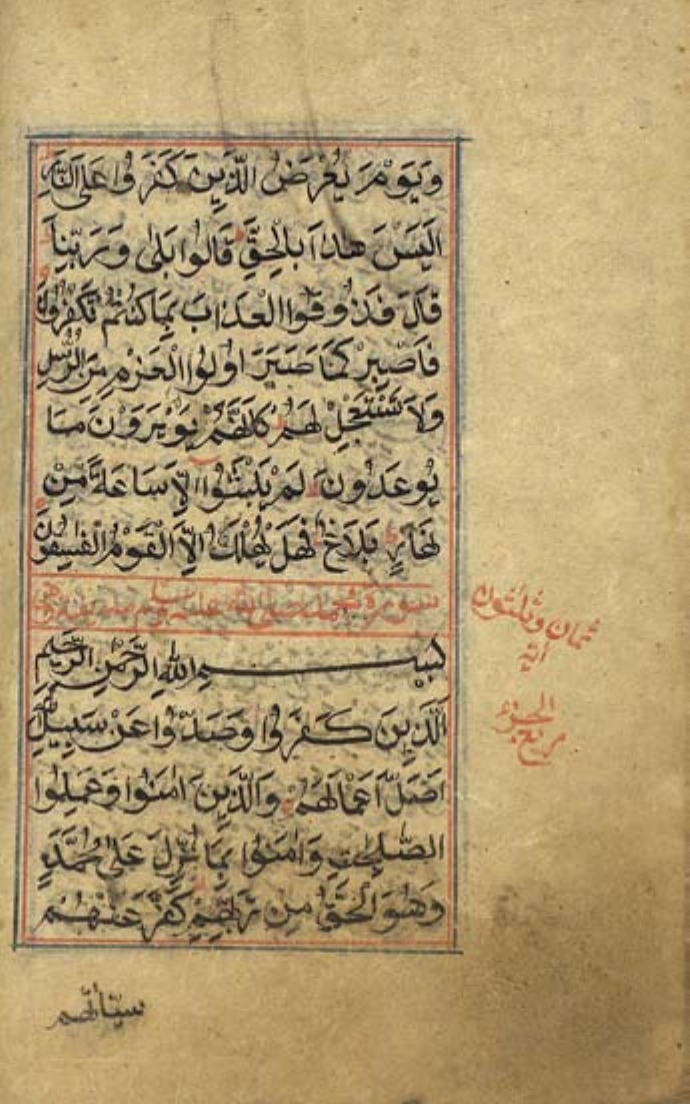 وَيَوْمَ يُعْرَضُ الَّذِينَ كَفَرُوا عَلَى النَّارِ
اَلَيْسَ هٰذَا بِالْحَقِّ قَالُوا بَلٰى وَرَبِّنَا
قَالَ فَذُوقُوا الْعَذَابَ بِمَا كُنْتُمْ تَكْفُرُونَ
فَاصْبِرْ كَمَا صَبَرَ اُولُوا الْعَزْمِ مِنَ الرُّسُلِ
وَلَا تَسْتَعْجِلْ لَهُمْ كَاَنَّهُمْ يَوْمَ يَرَوْنَ مَا
يُوعَدُونَ لَمْ يَلْبَثُوا اِلَّا سَاعَةً مِنْ
نَهَارٍ بَلَاغٌ فَهَلْ يُهْلَكُ اِلَّا الْقَوْمُ الْفٰسِقُونَ
سورة محمد صلى الله عليه وسلم
ثمان وثلثون
اية
بِسْمِ اللّٰهِ الرَّحْمٰنِ الرَّحِيمِ
اَلَّذِينَ كَفَرُوا وَصَدُّوا عَنْ سَبِيلِ اللّٰهِ
اَضَلَّ اَعْمَالَهُمْ وَالَّذِينَ اٰمَنُوا وَعَمِلُوا
الصّٰلِحٰتِ وَاٰمَنُوا بِمَا نُزِّلَ عَلٰى مُحَمَّدٍ
وَهُوَ الْحَقُّ مِنْ رَبِّهِمْ كَفَّرَ عَنْهُمْ
الجزء
ربع
سيّاتهم